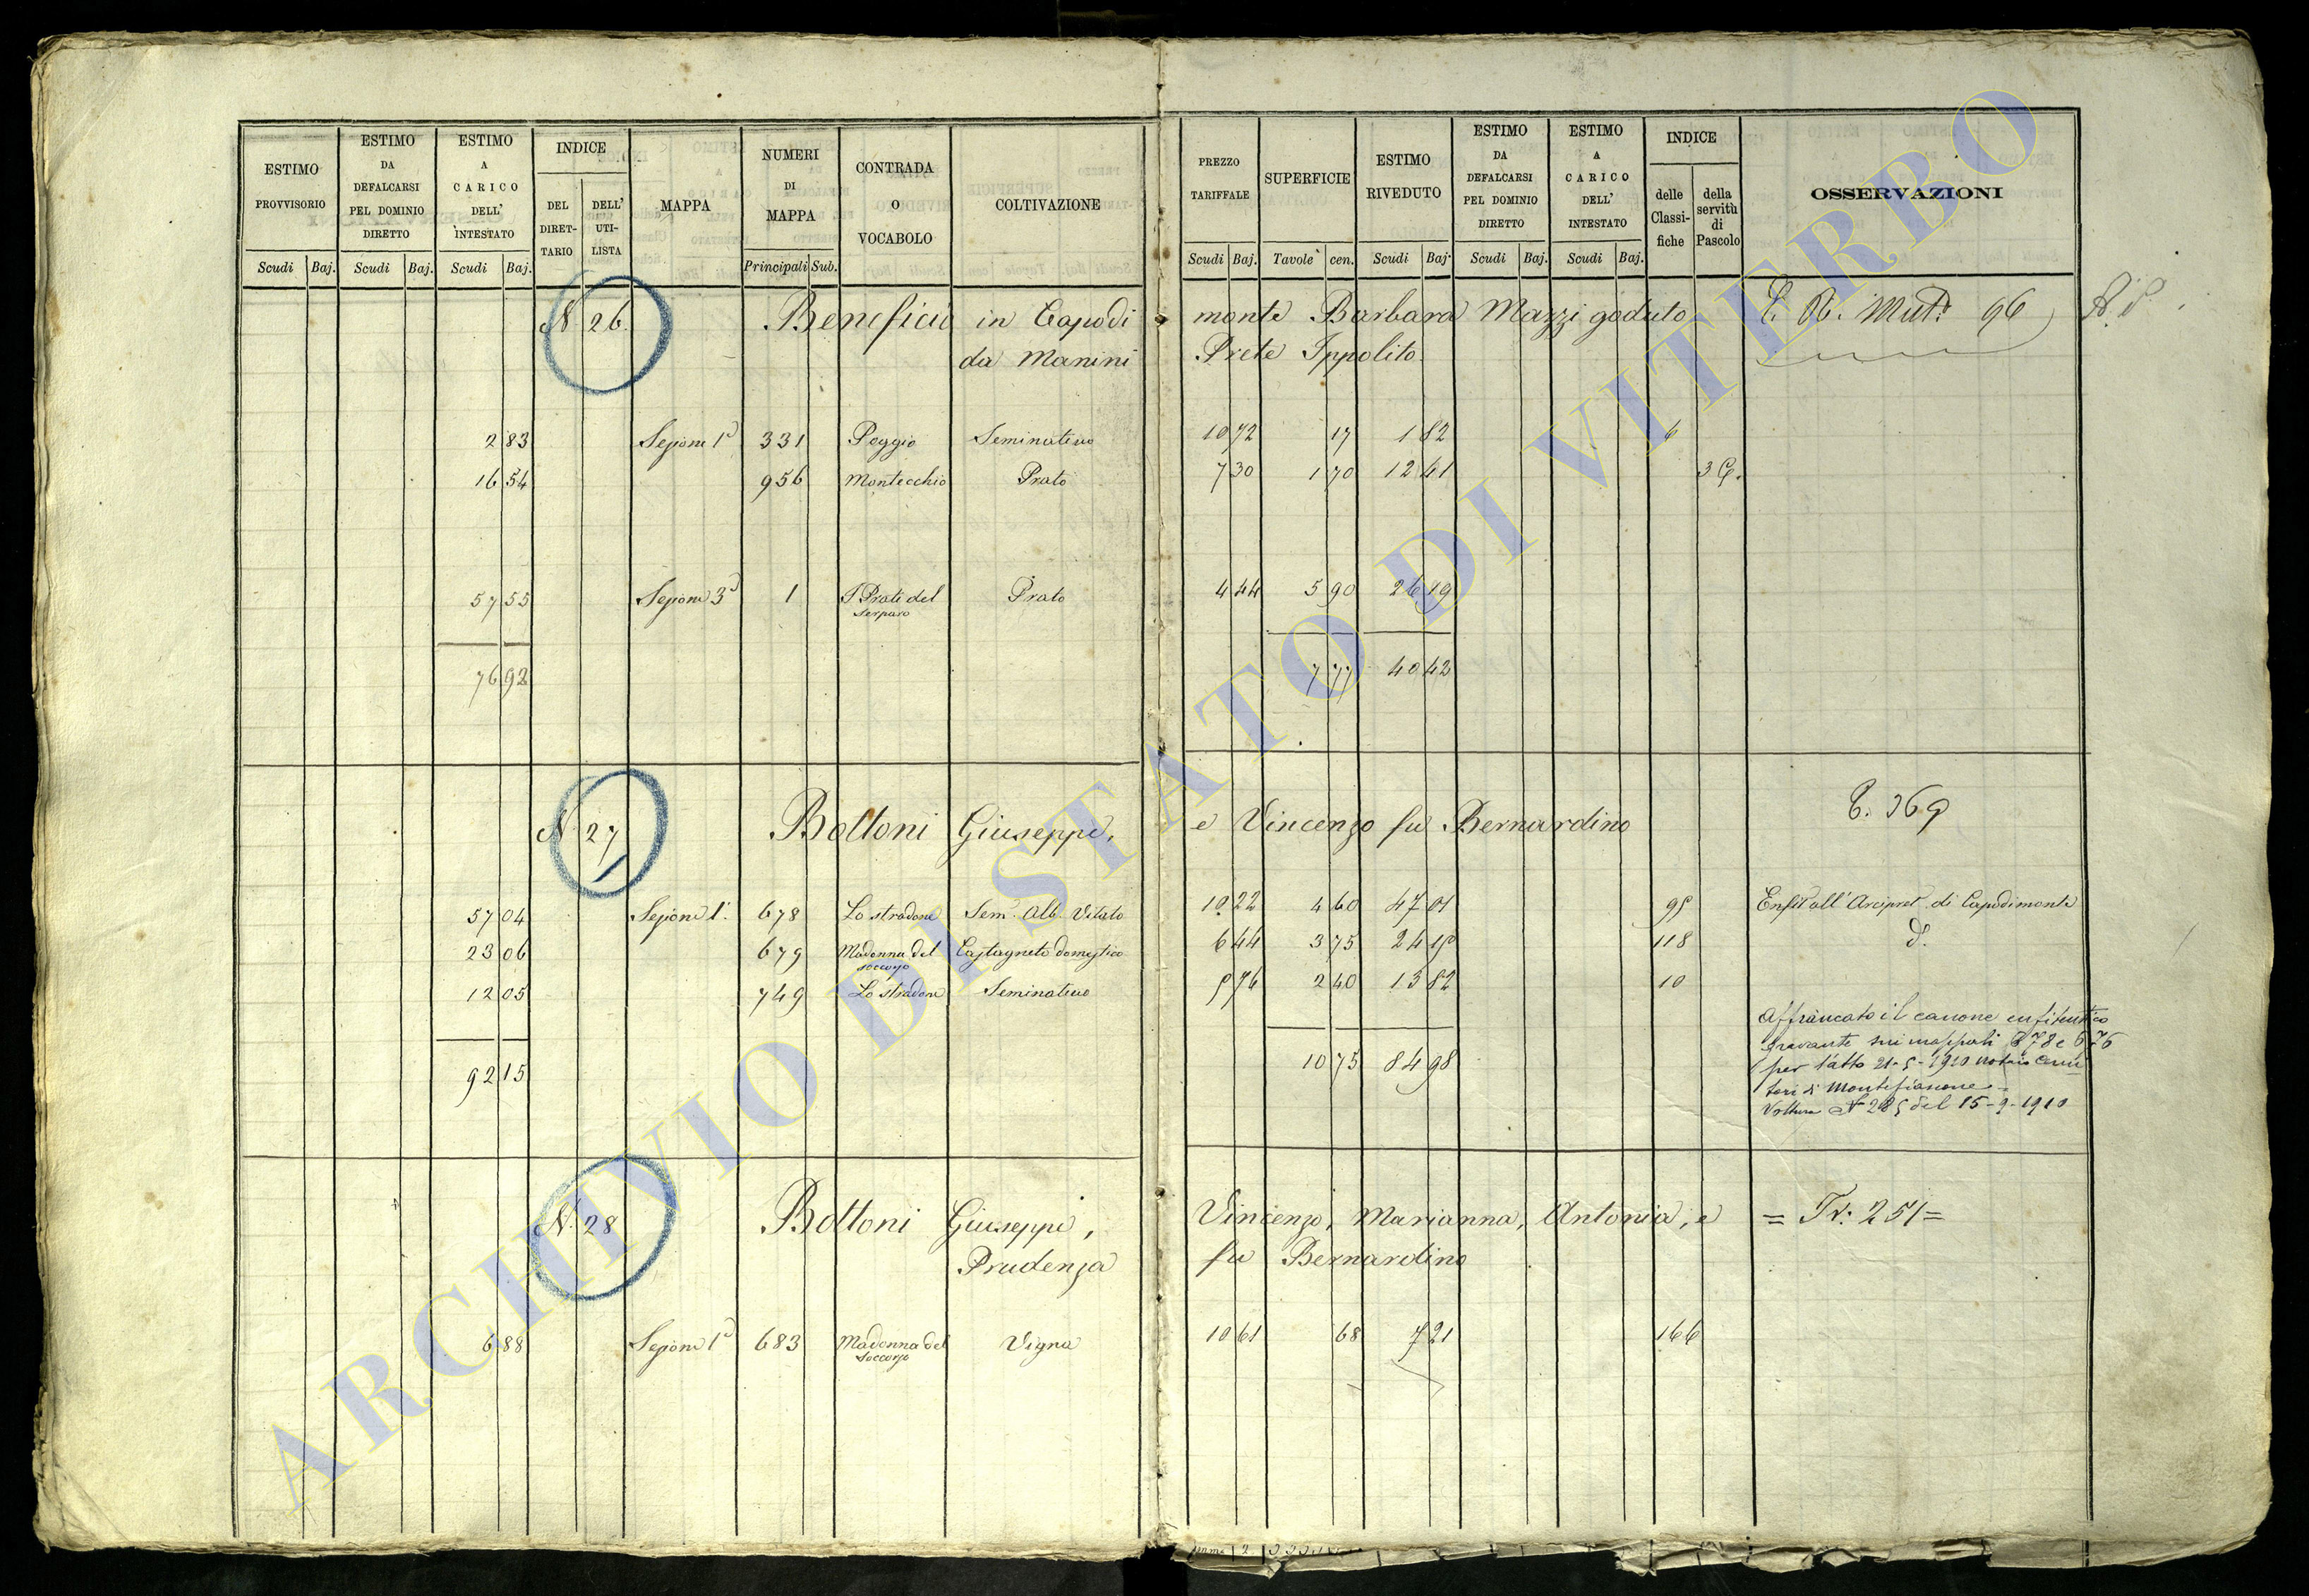 ESTIMO PROVVISORIO
ESTIMO DA DEFALCARSI PEL DOMINIO DIRETTO
ESTIMO A CARICO DELL' INTESTATO
INDICE
DEL DIRET-TARIO
DELL' UTI-LISTA
MAPPA
NUMERI DI MAPPA
CONTRADA O VOCABOLO
COLTIVAZIONE
PREZZO TARIFFALE
SUPERFICIE
ESTIMO RIVEDUTO
ESTIMO DA DEFALCARSI PEL DOMINIO DIRETTO
ESTIMO A CARICO DELL' INTESTATO
INDICE
delle Classi-fiche
della servitù di Pascolo
OSSERVAZIONI
Scudi Baj. Scudi Baj. Scudi Baj. Principali Sub. Scudi Baj. Tavole cen. Scudi Baj. Scudi Baj. Scudi Baj.
N. 26. Beneficio in Capodi monte Barbara Mazzi goduto Mut: 96
da Manini Prete Ippolito
2 83 Sezione 1ª 331 Poggio Seminativo 10 72 17 1 82 6
16 54 956 Montecchio Prato 7 30 1 70 12 41 3
57 55 Sezione 3ª 1 I Prati del Serparo Prato 4 44 5 90 26 19
76 92 7 77 40 42
N. 27 Bottoni Giuseppe, e Vincenzo fu Bernardino 369
57 04 Sezione 1ª 678 Lo stradone Sem. Alb. Vitato 10 22 4 60 47 01 95 Enfit all' Arcipret. di Capodimonte
23 06 679 Madonna del soccorso Castagneto domestico 6 44 3 75 24 15 118 d.
12 05 749 Lo stradone Seminativo 5 76 2 40 13 82 10
92 15 10 75 84 98
Affrancato il canone enfiteutico
gravante sui mappali 678 e 676
per l'atto 21-5-1910 notaio
di Montefiascone
Voltura N 285 del 15-9-1910
N. 28 Bottoni Giuseppe, Vincenzo, Marianna, Antonia, e = Tr: 251 =
Prudenza fu Bernardino
6 88 Sezione 1ª 683 Madonna del Soccorso Vigna 10 61 68 7 21 166
ARCHIVIO DI STATO DI VITERBO